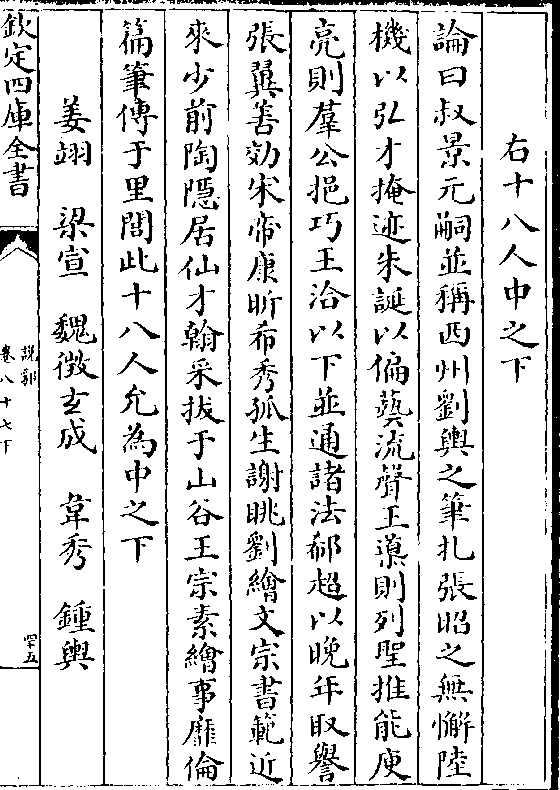 右十八人中之下
論曰叔景元嗣並稱西州劉輿之筆札張昭之無懈陸
機以弘才掩迹朱誕以偏藝流聲王廙則列聖推能庾
亮則羣公挹巧王洽以下並通諸法郗超以晚年取譽
張翼善効宋帝康昕希秀孤生謝眺劉繪文宗書範近
來少前陶隠居仙才翰采拔于山谷王宗素繪事靡倫
篇筆傳于里閭此十八人允為中之下
姜翊 梁宣 魏徴玄成 韋秀 鍾輿
欽定四庫全書
說郛
卷八十七下
四十五